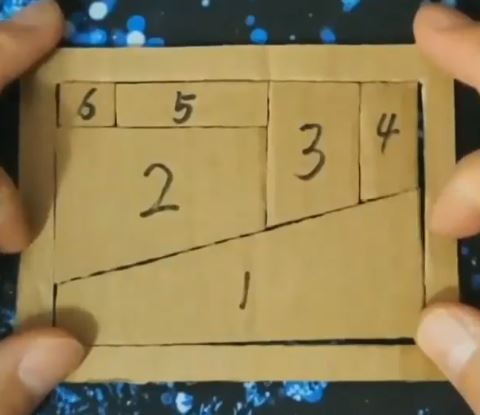 6 5 3 4
2
1